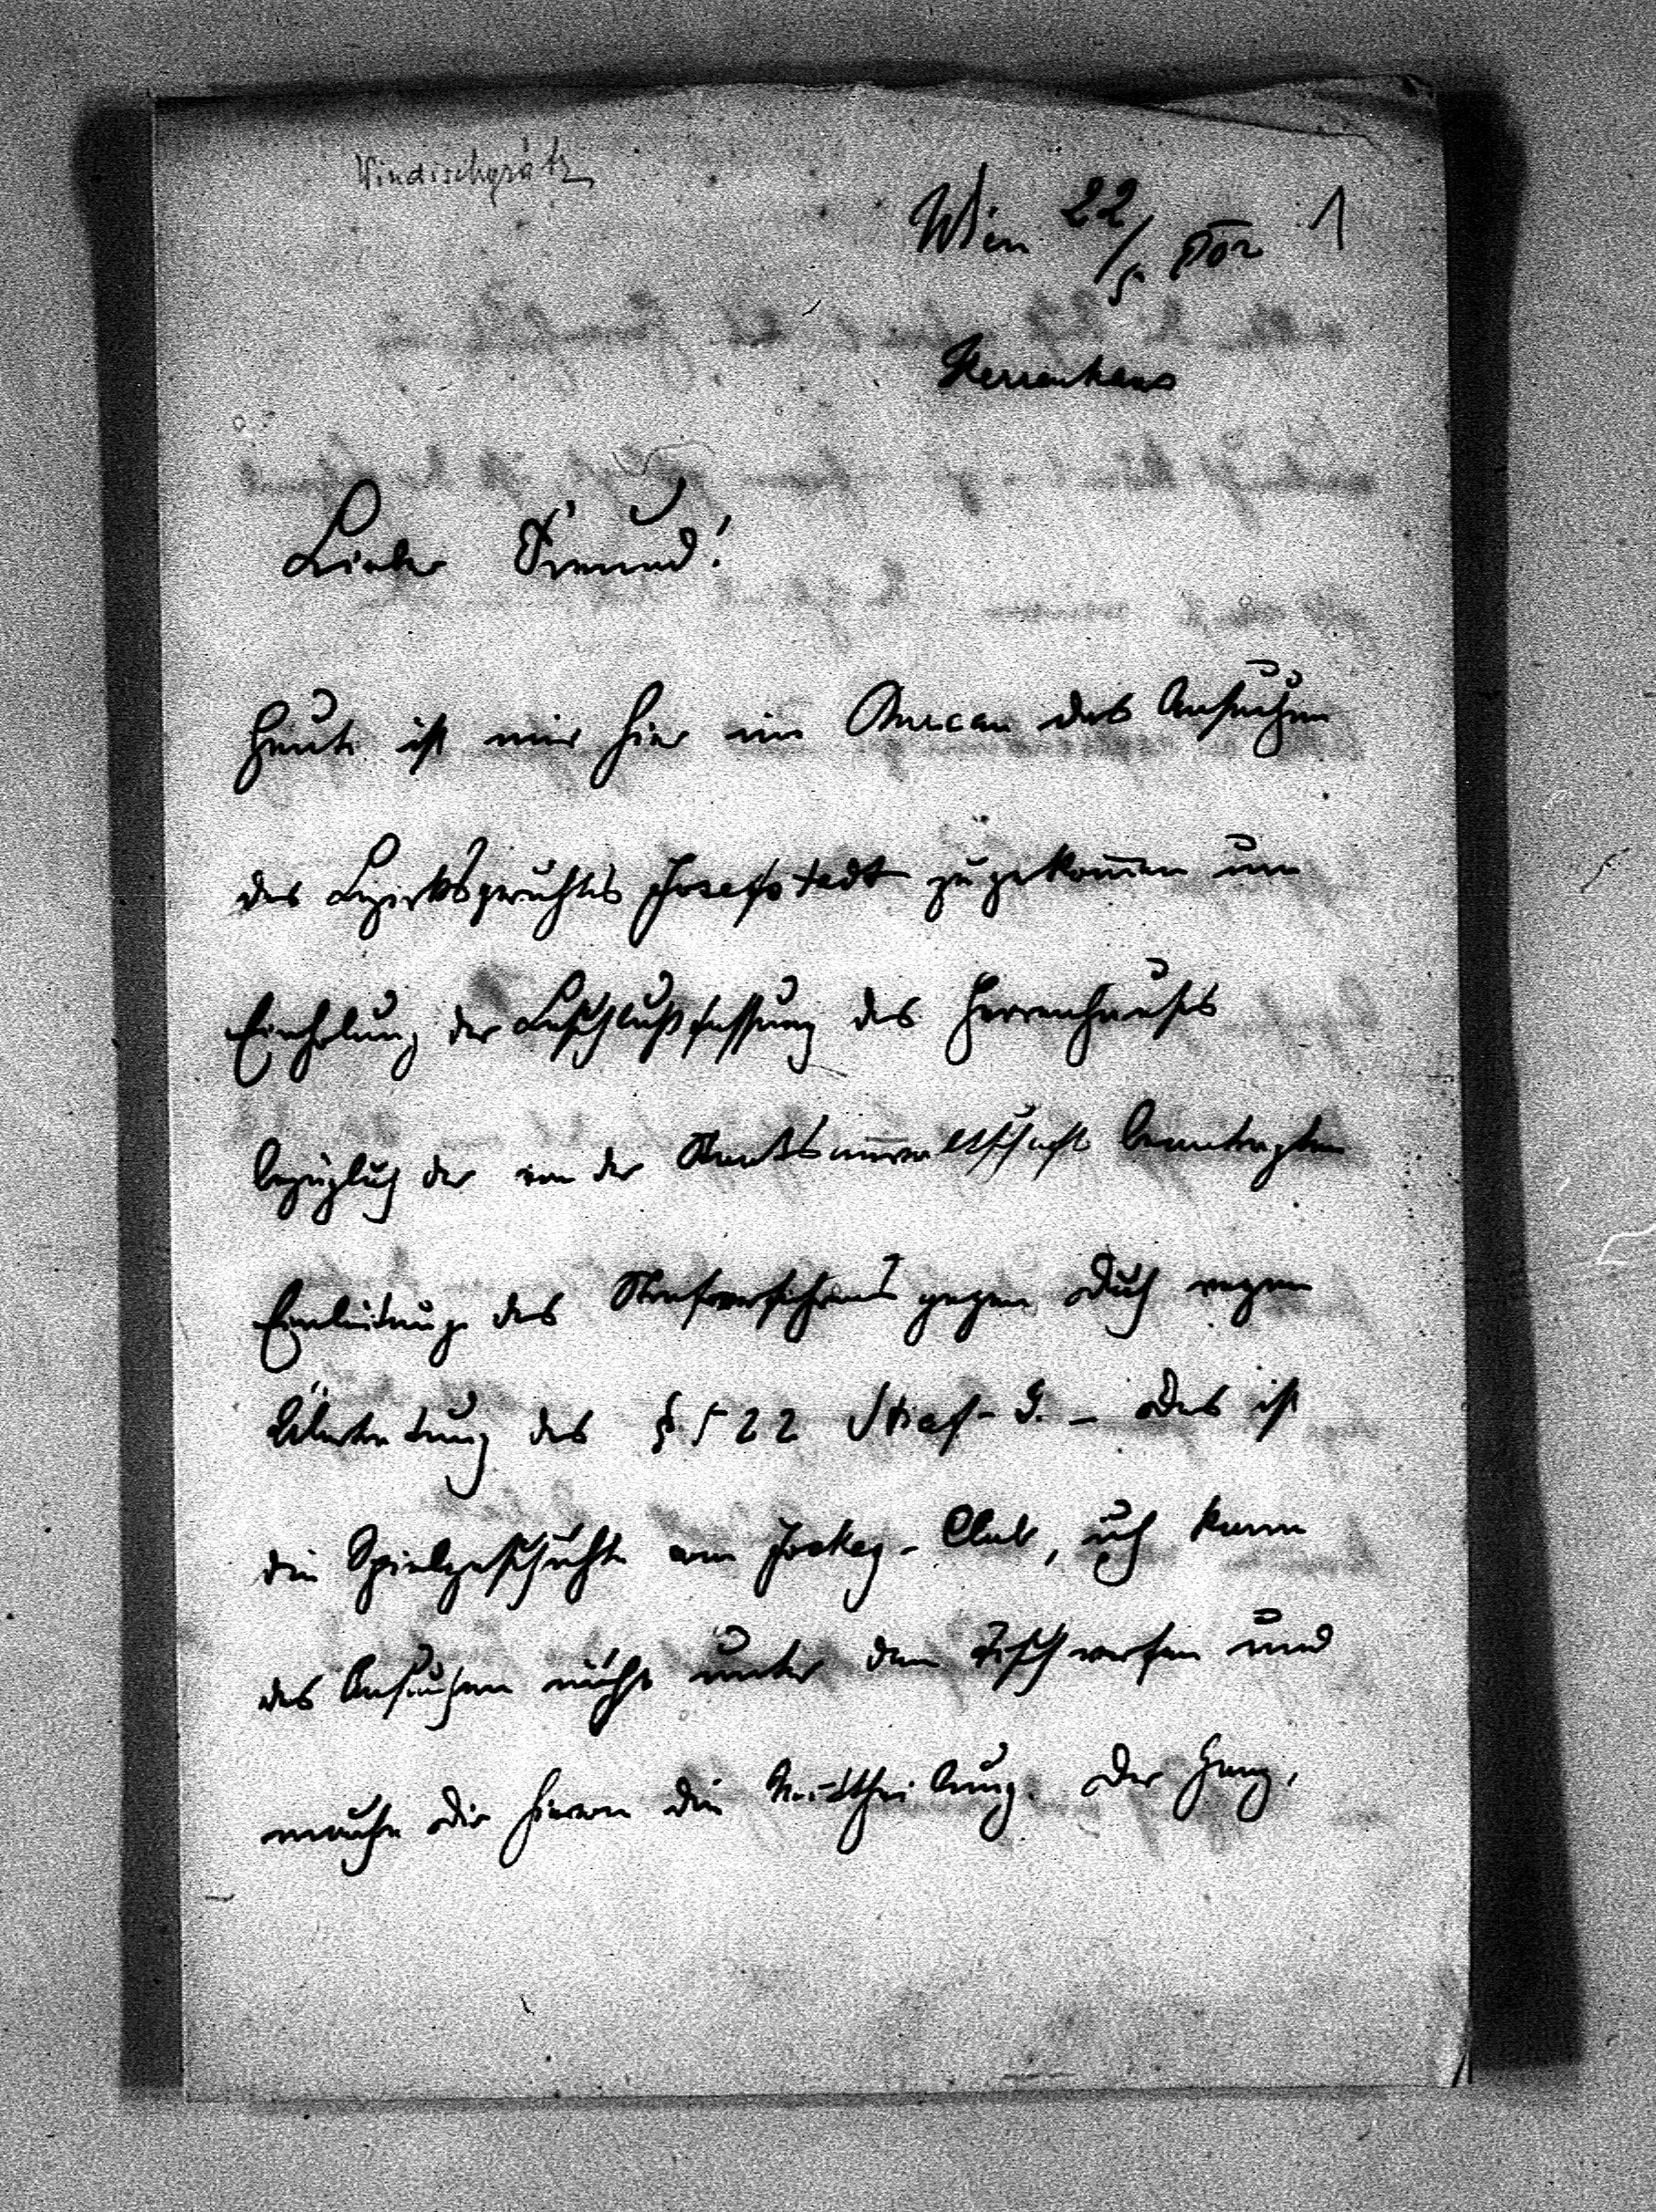 Windischgrätz
Wien 22/5 902 1
Herrenhaus
Lieber Freund!
Heute ist mir hier im Bureau das Ansuchen
des Bezirksgerichtes Josefstadt zugekommen um
Einholung der Beschlußfassung des Herrenhauses
bezüglich der von der Staatsanwaltschaft beantragten
Einleitung des Strafverfahrens gegen Dich wegen
Übertretung des § 522 Straf-G. – Das ist
die Spielgeschichte vom Jockey-Club, ich kann
das Ansuchen nicht unter den Tisch werfen und
mache Dir hievon die Mittheilung. Der Gang,